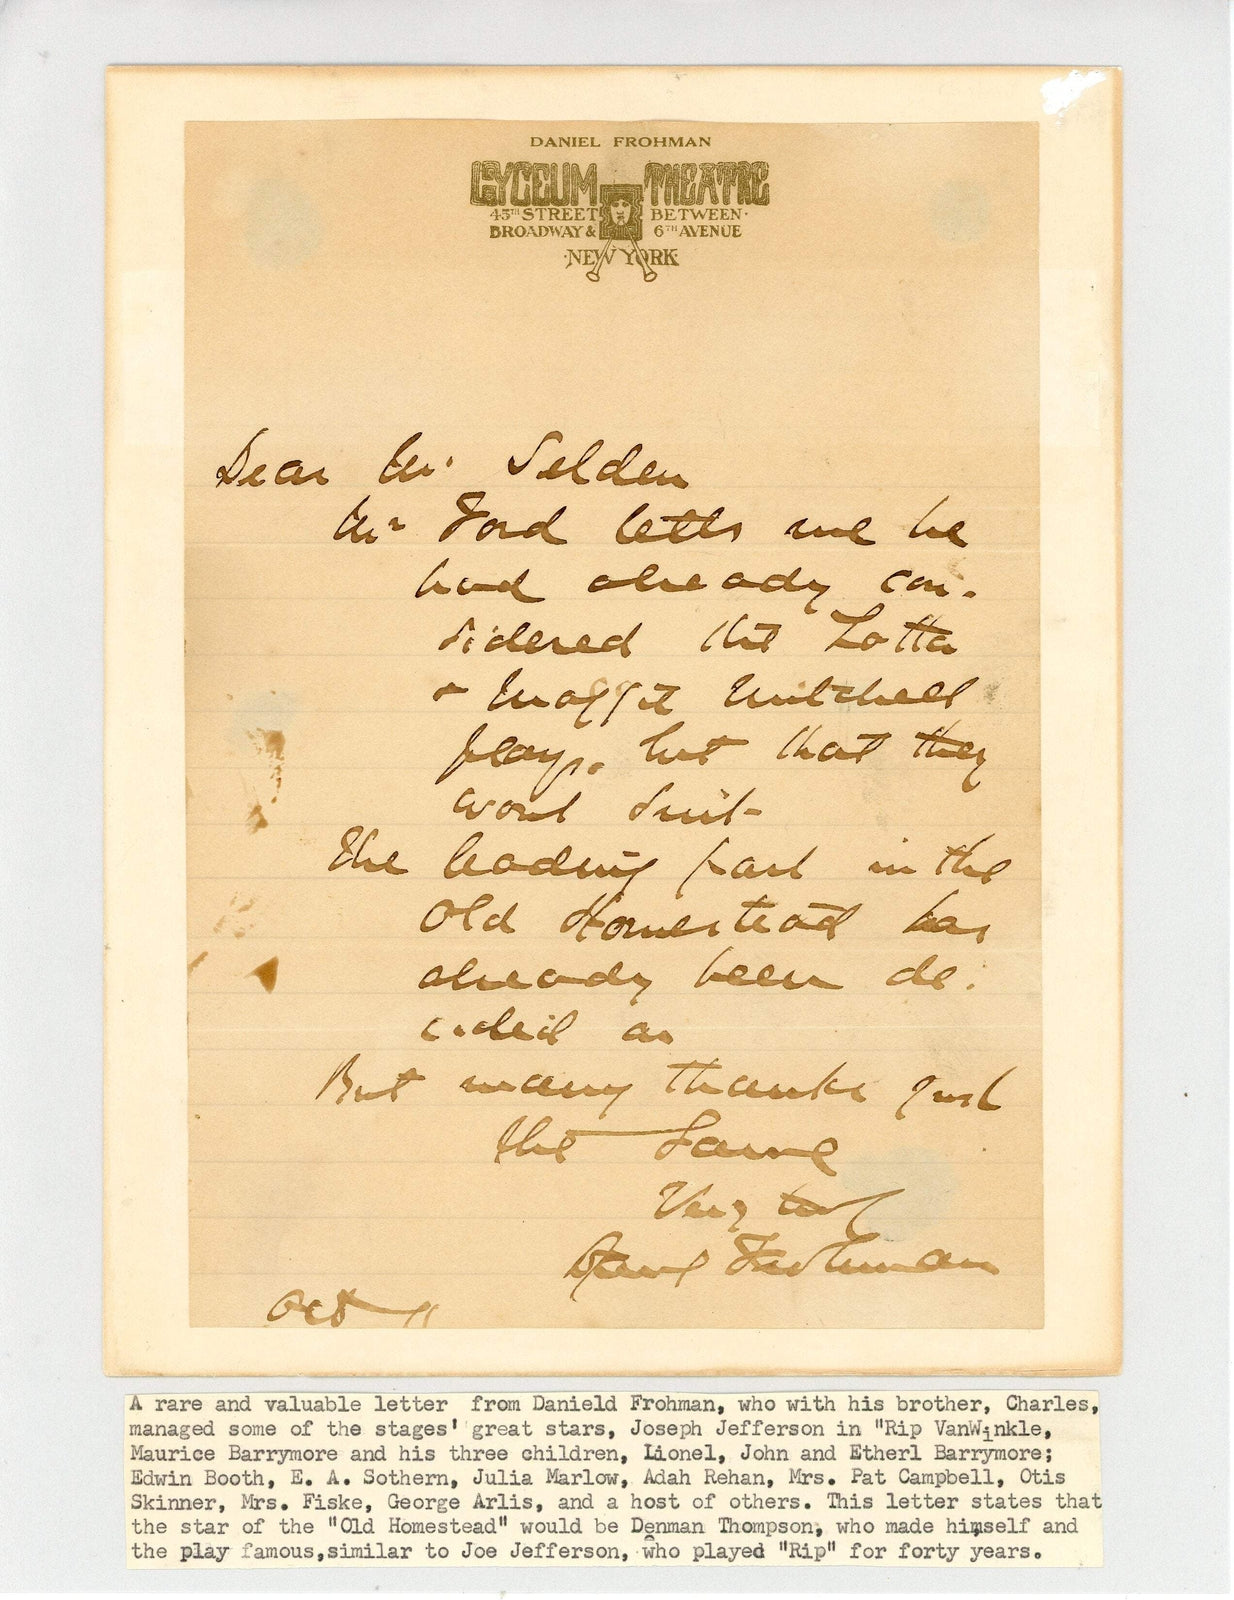 DANIEL FROHMAN
LYCEUM THEATRE
45TH STREET BETWEEN
BROADWAY & 6TH AVENUE
·NEW YORK·
Dear Mr. Selden
Mr Ford tells me he
had already con-
sidered the Lotta
+ Maggie Mitchell
plays. but that they
wont suit-
The leading part in the
Old Homestead has
already been de-
cided on
But many thanks just
the same
Very truly
Danl Frohman
Oct 11
A rare and valuable letter from Danield Frohman, who with his brother, Charles,
managed some of the stages' great stars, Joseph Jefferson in "Rip VanWinkle,
Maurice Barrymore and his three children, Lionel, John and Etherl Barrymore;
Edwin Booth, E. A. Sothern, Julia Marlow, Adah Rehan, Mrs. Pat Campbell, Otis
Skinner, Mrs. Fiske, George Arlis, and a host of others. This letter states that
the star of the "Old Homestead" would be Denman Thompson, who made himself and
the play famous,similar to Joe Jefferson, who played "Rip" for forty years.